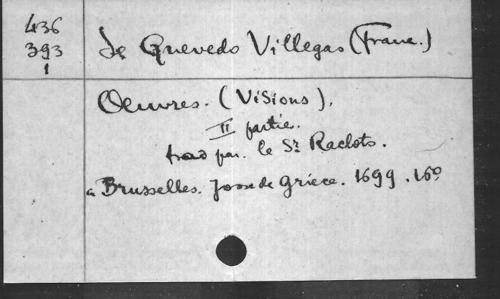 436
393
1
de Quevedo Villegas (Franc.)
Oeuvres. (Visions),
II partie.
trad par. le Sr. Raclots.
a Brusselles. Josse de Griece. 1699. 16o